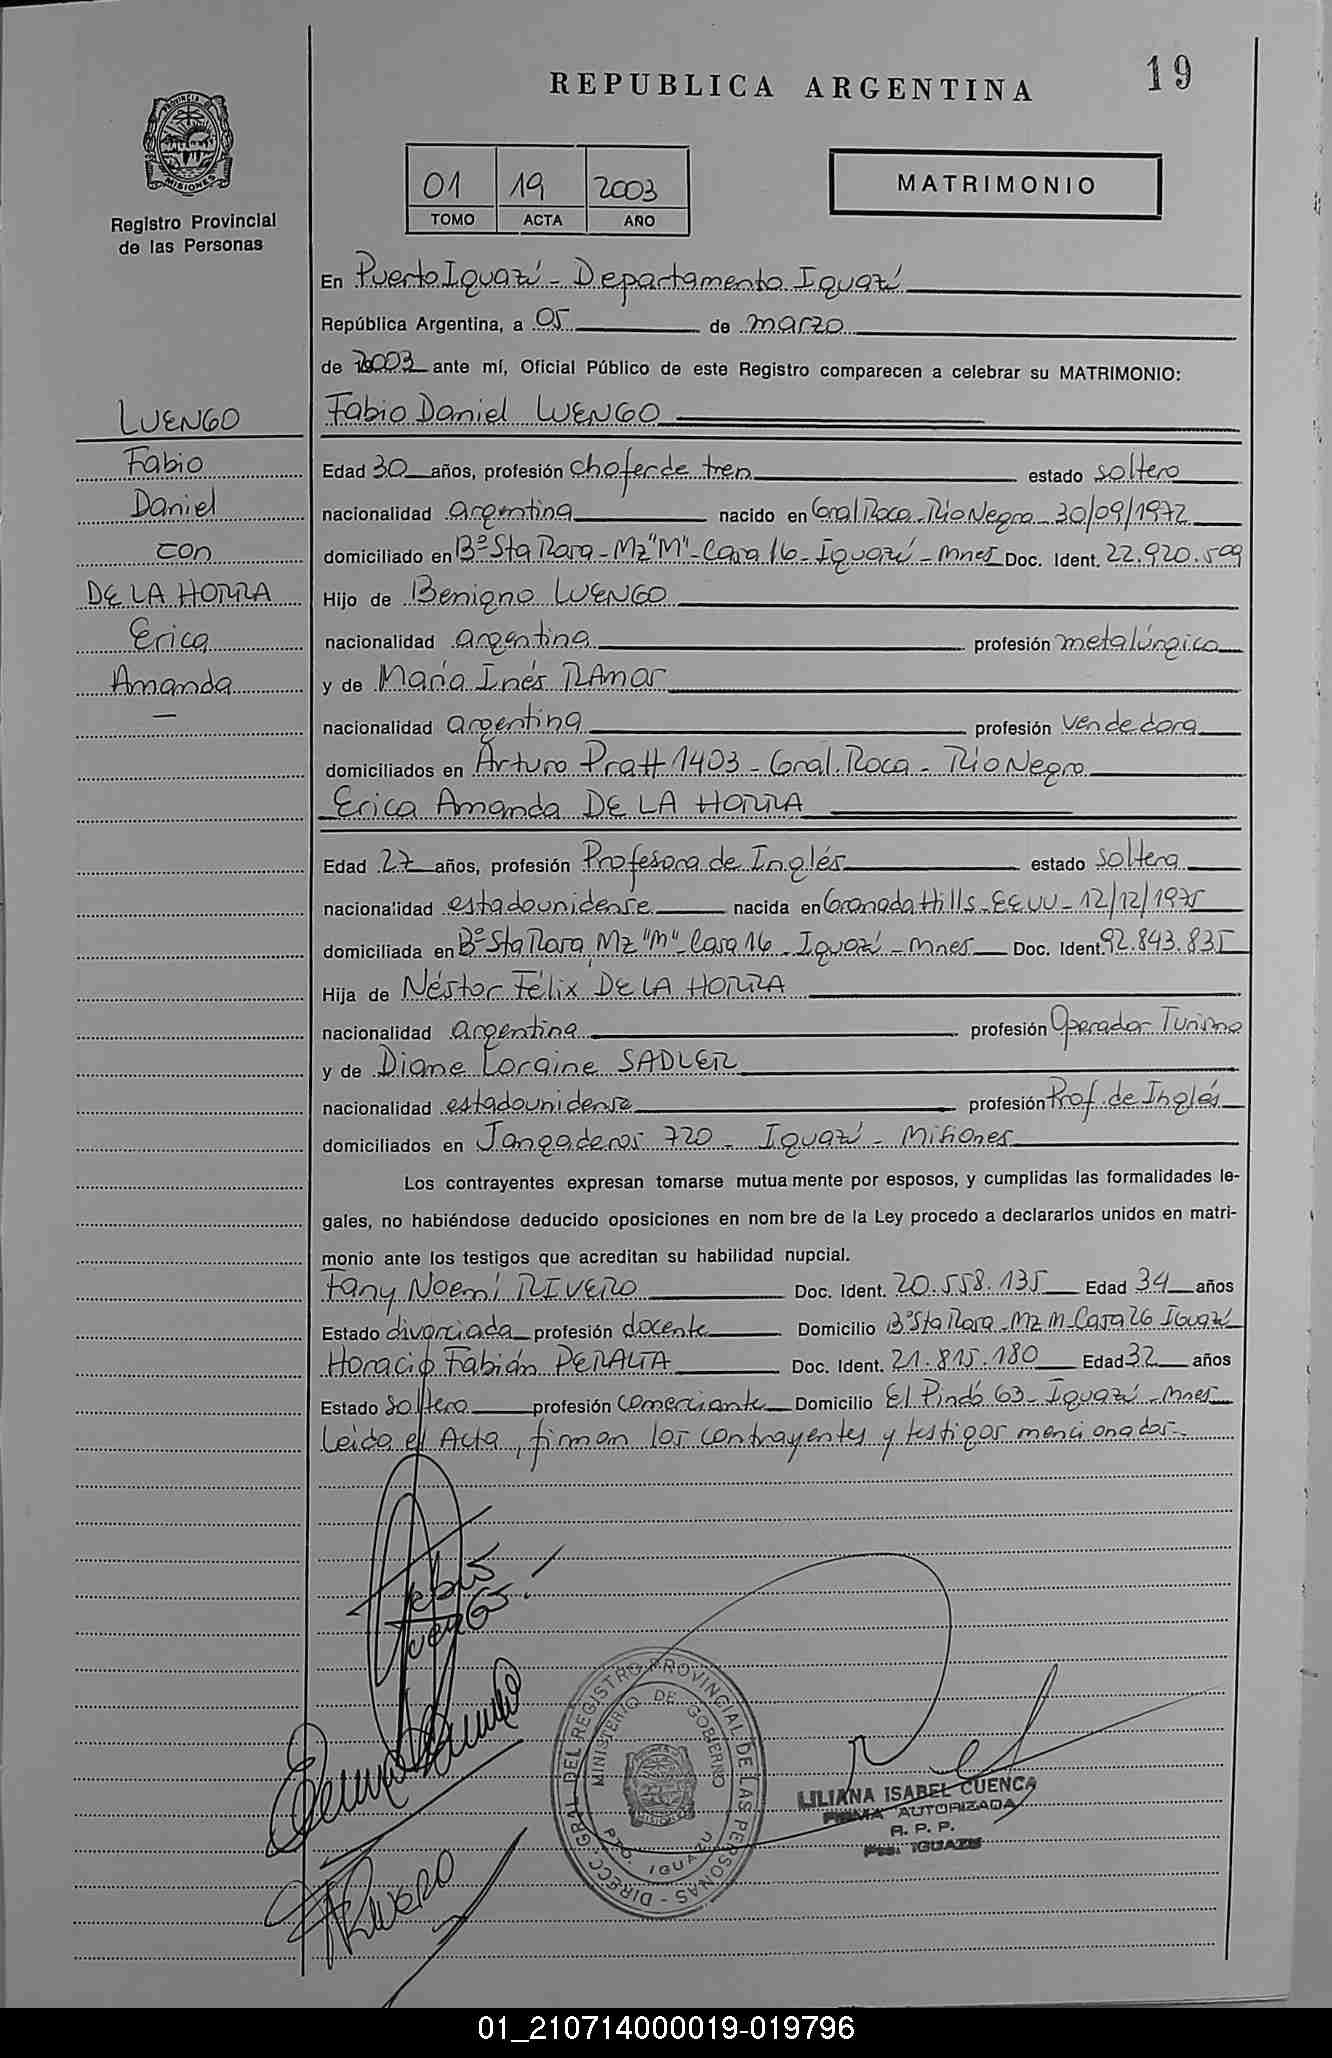 19
REPUBLICA ARGENTINA
PROVINCIA DE
MISIONES
Registro Provincial
de las Personas
01 19 2003
TOMO ACTA AÑO
MATRIMONIO
En Puerto Iguazú - Departamento Iguazú
República Argentina, a 05 de marzo
de 2003 ante mí, Oficial Público de este Registro comparecen a celebrar su MATRIMONIO:
LUENGO
Fabio
Daniel
con
DE LA HORRA
Erica
Amanda
Fabio Daniel LUENGO
Edad 30 años, profesión chofer de tren estado soltero
nacionalidad argentina nacido en Gral Roca - Río Negro 30/09/1972
domiciliado en Bº Sta Rara - Mz "M" - Casa 16 - Iguazú - Mnes Doc. Ident. 22.920.509
Hijo de Benigno LUENGO
nacionalidad argentina profesión metalúrgico
y de María Inés RAMOS
nacionalidad argentina profesión vendedora
domiciliados en Arturo Pratt 1403 - Gral. Roca - Río Negro
Erica Amanda DE LA HORRA
Edad 27 años, profesión Profesora de Inglés estado soltera
nacionalidad estadounidense nacida en Granada Hills - EEUU - 12/12/1975
domiciliada en Bº Sta Rara, Mz "M" - Casa 16 - Iguazú - Mnes Doc. Ident. 92.843.835
Hija de Néstor Félix DE LA HORRA
nacionalidad argentina profesión Operador Turismo
y de Diane Loraine SADLER
nacionalidad estadounidense profesión Prof. de Inglés
domiciliados en Jangaderos 720 - Iguazú - Misiones
Los contrayentes expresan tomarse mutua mente por esposos, y cumplidas las formalidades le-
gales, no habiéndose deducido oposiciones en nom bre de la Ley procedo a declararlos unidos en matri-
monio ante los testigos que acreditan su habilidad nupcial.
Fany Noemí RIVERO Doc. Ident. 20.558.135 Edad 34 años
Estado divorciada profesión docente Domicilio Bº Sta Rara - Mz M - Casa 26 Iguazú
Horacio Fabián PERALTA Doc. Ident. 21.815.180 Edad 32 años
Estado soltero profesión comerciante Domicilio El Pindó 63 - Iguazú - Mnes
Leída el Acta, firman los contrayentes y testigos mencionados.-
DIRECC. GRAL DEL REGISTRO PROVINCIAL DE LAS PERSONAS
MINISTERIO DE GOBIERNO
PTO. IGUAZU
LILIANA ISABEL CUENCA
FIRMA AUTORIZADA
R. P. P.
Pto. IGUAZU
RIVERO
01_210714000019-019796